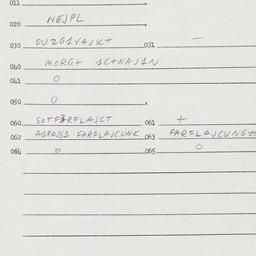 011
020 NEJPL
030 DUZG1VAJKT 031 —
040 MORGT 1CTNAJ1N
041 0
050 0
060 SOTFRFLAJCT 061 +
062 AGROSS1 FARFLAJCUNK 063 FARFLAJCUNG
064 0 065 0